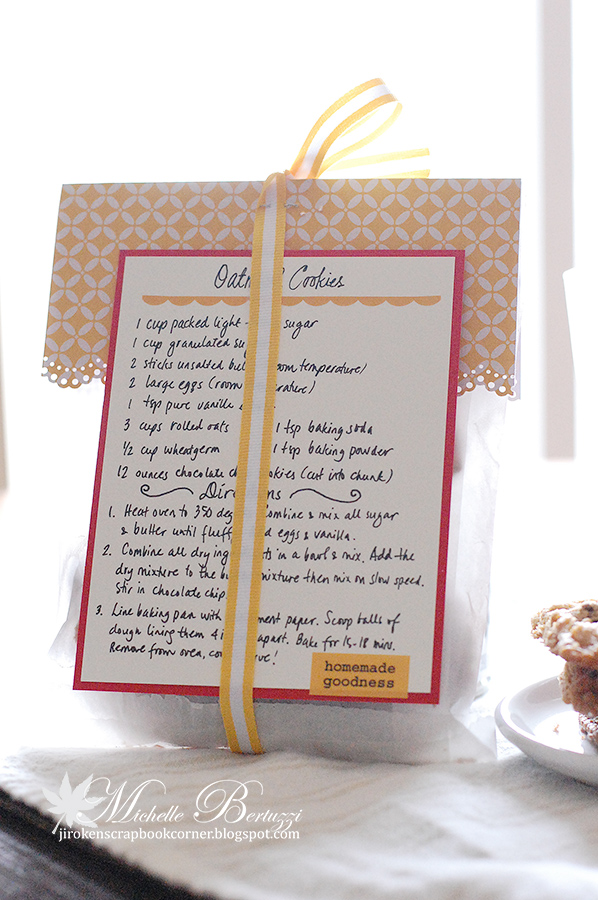 Cookies
1 cup packed light sugar
1 cup granulated
2 sticks unsalted temperature)
2 large eggs (room
1 tsp pure vanilla
3 cups rolled oats 1 tsp baking soda
1/2 cup wheatgerm 1 tsp baking powder
12 ounces chocolate (cut into chunk)
1. Heat oven to 350 combine & mix all sugar
& butter until eggs & vanilla.
2. Combine all dry in a bowl & mix. Add the
dry mixture to the mixture then mix on slow speed.
stir in chocolate chip
3. Line baking pan with paper. Scoop balls of
dough lining them 4 apart. Bake for 15-18 min.
Remove from oven,
homemade
goodness
Michelle Bertuzzi
jirokenscrapbookcorner.blogspot.com